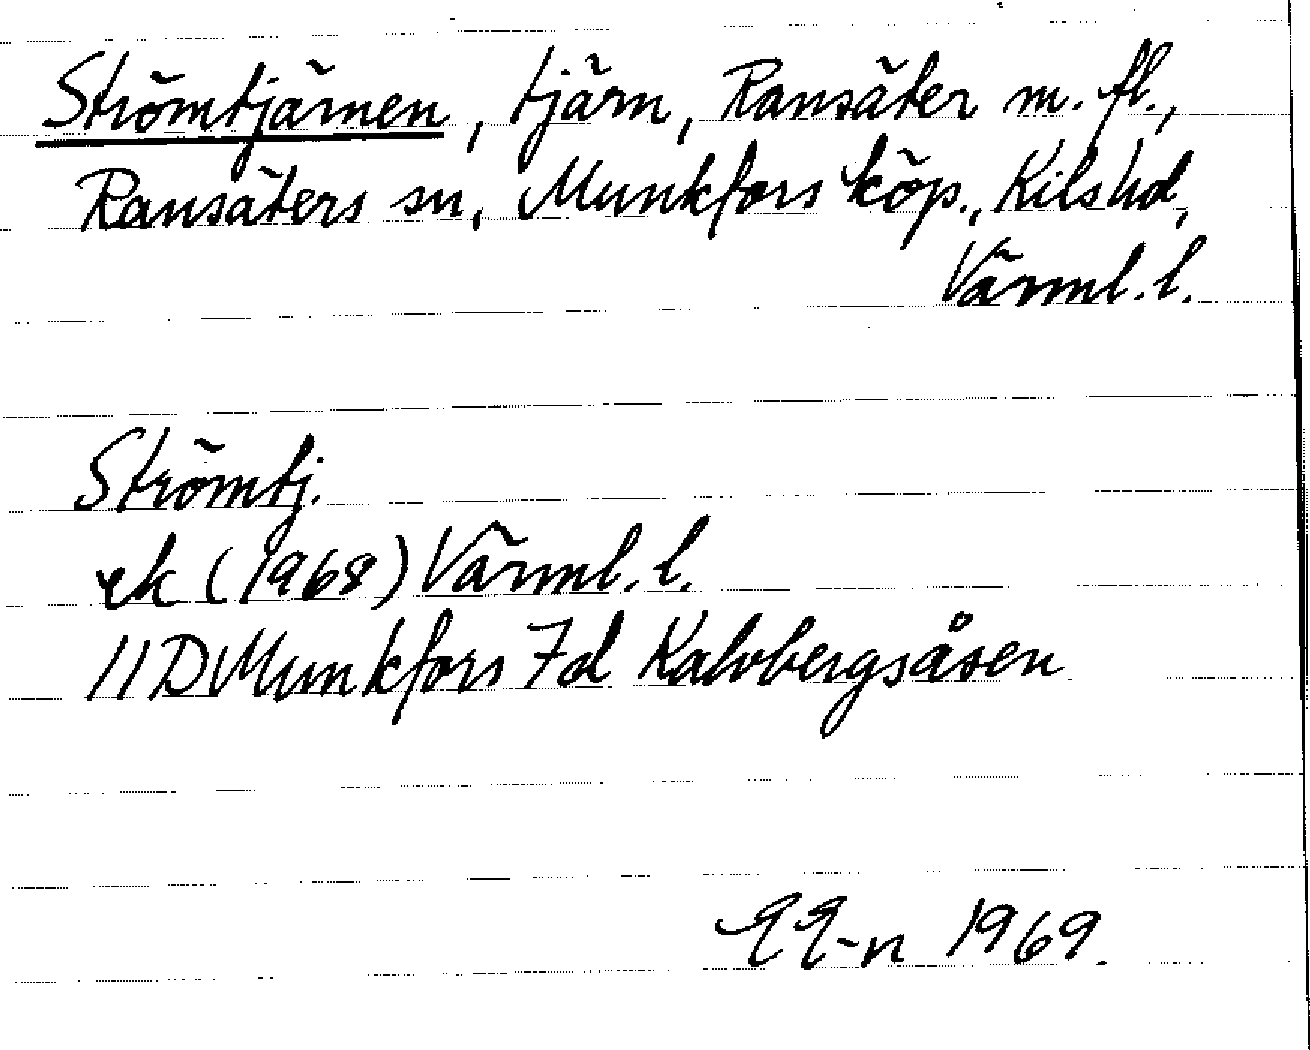 Strömtjärnen, tjärn, Ransäter m. fl.,
Ransäters sn, Munkfors köp., Kils hd,
Värml. l.
Strömtj.
ek (1968) Värml. l.
11D Munkfors 7d Kalvbergsåsen
1969.